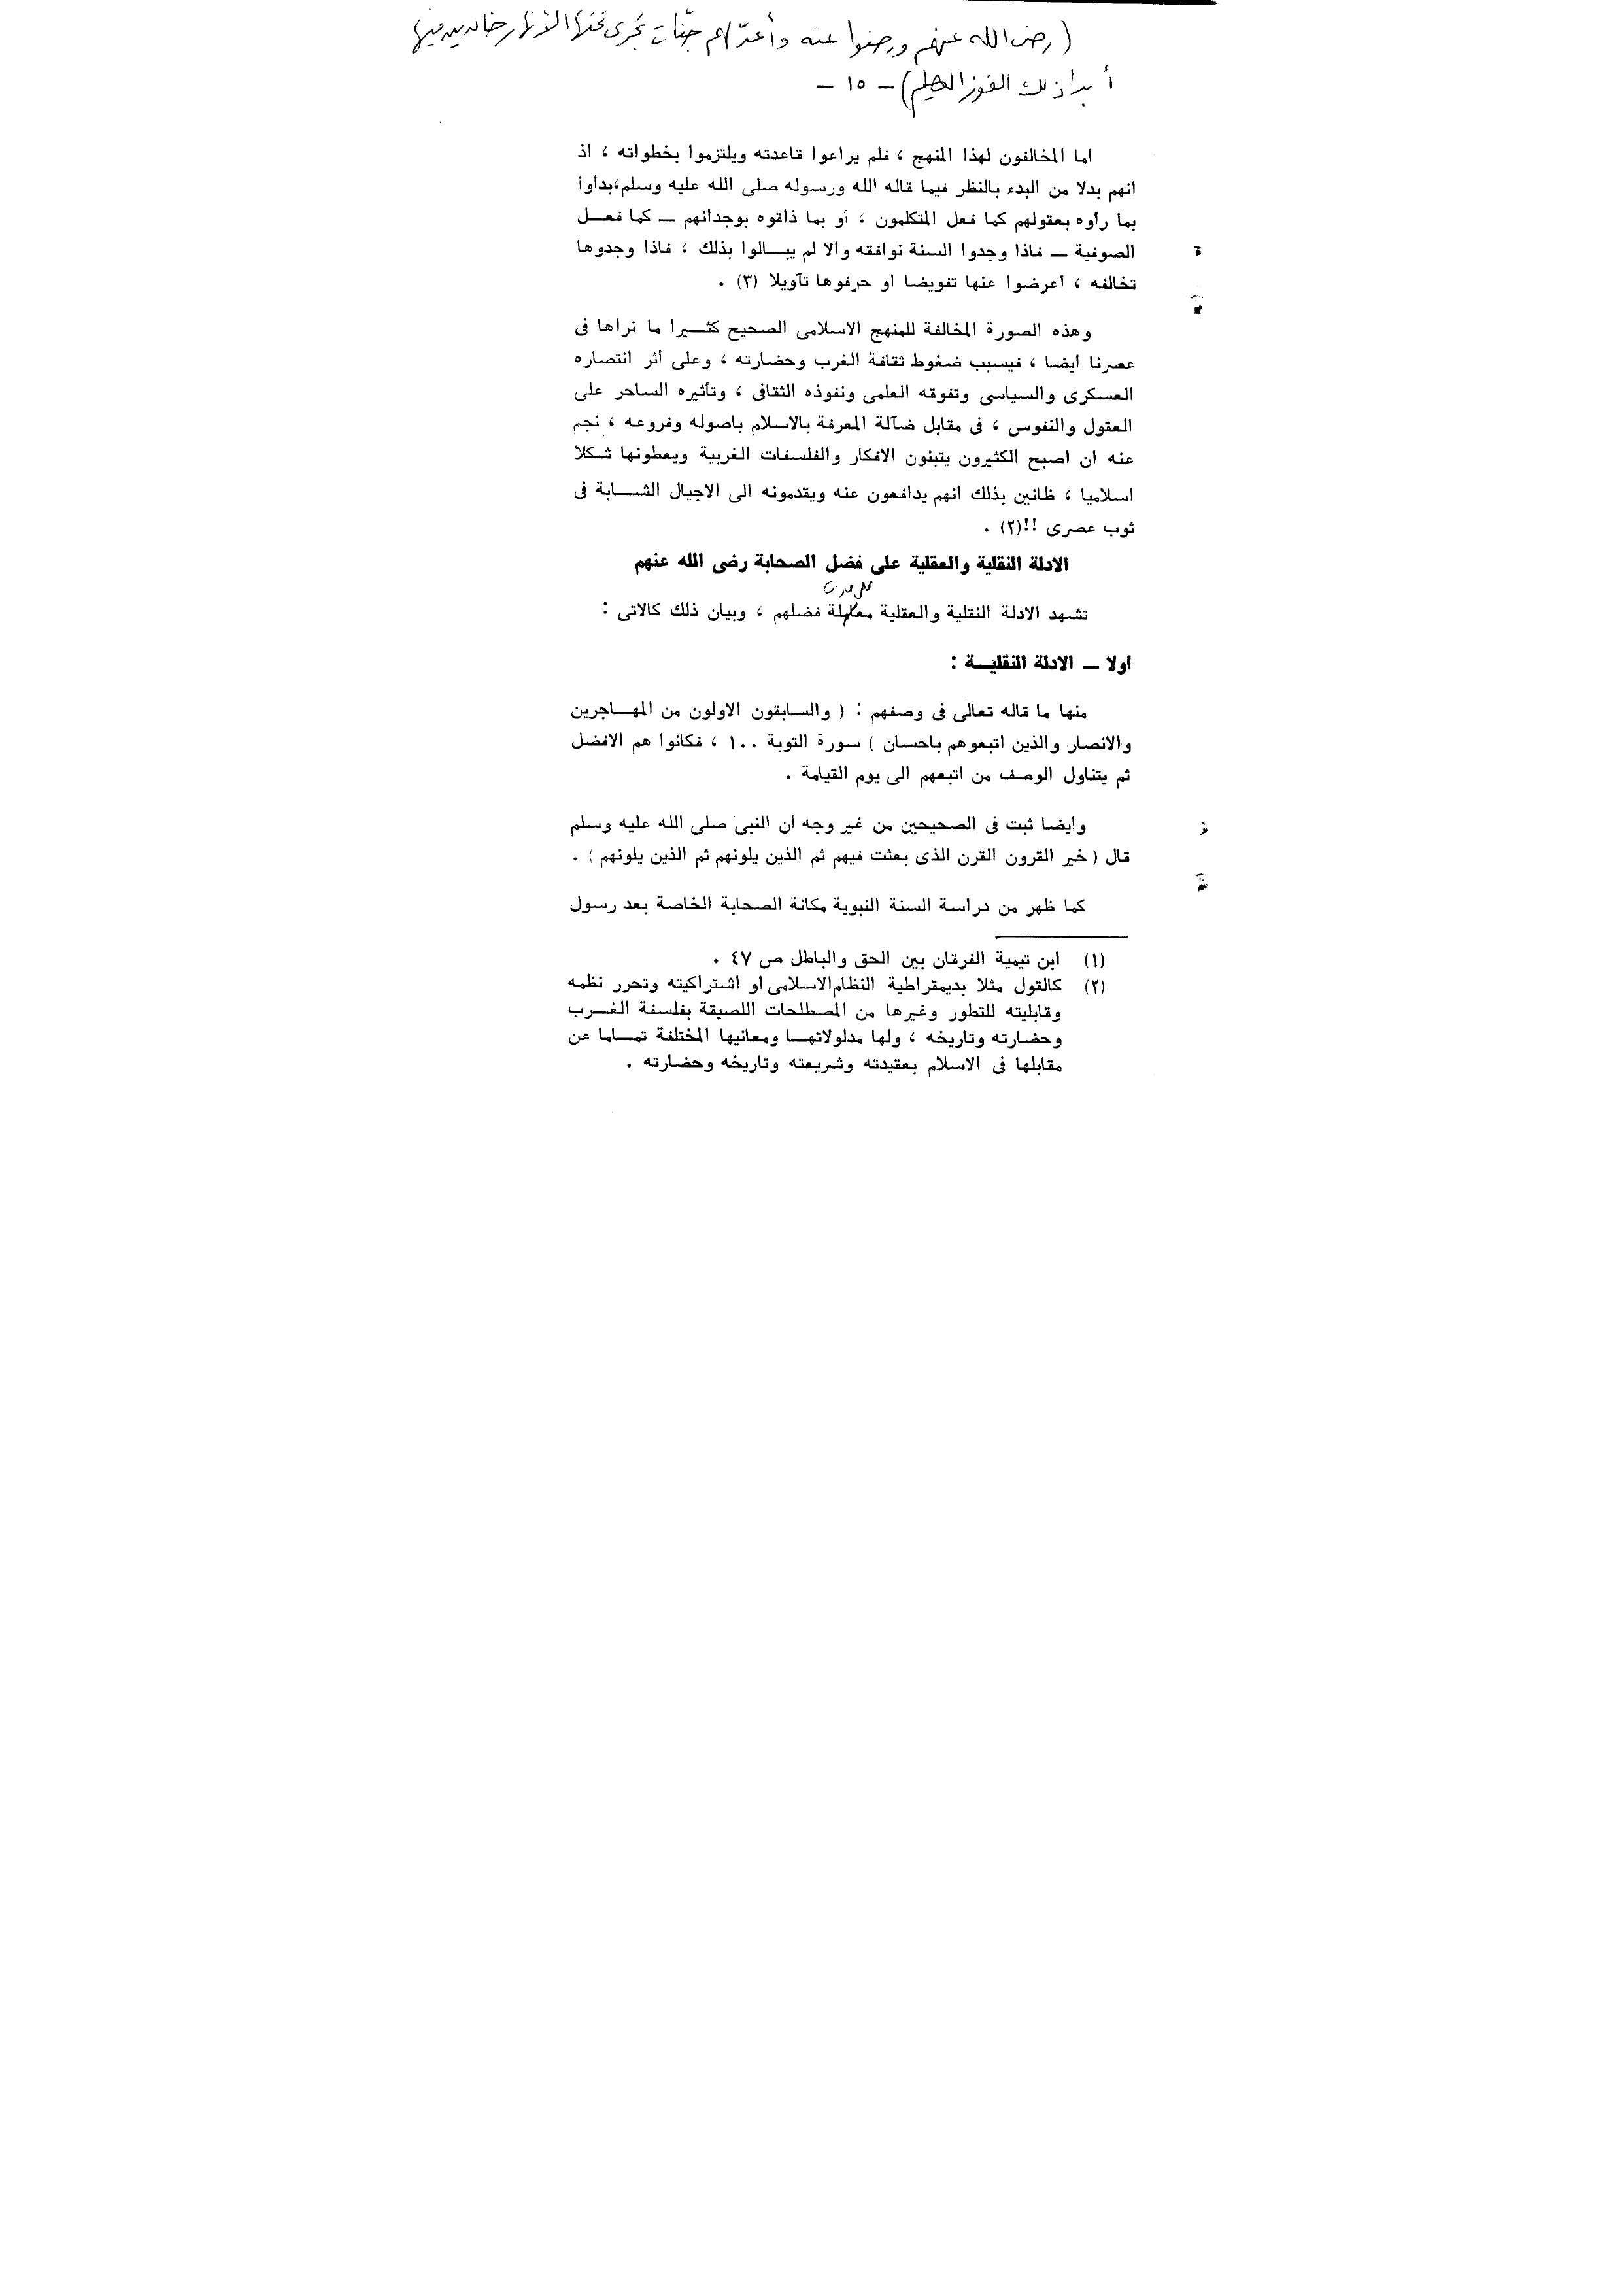 (رضى الله عنهم ورضوا عنه وأعدّ لهم جنّات تجرى تحتها الأنهار خالدين فيها
أبدا ذلك الفوز العظيم) – ١٥ –
اما المخالفون لهذا المنهج ، فلم يراعوا قاعدته ويلتزموا بخطواته ، اذ
انهم بدلا من البدء بالنظر فيما قاله الله ورسوله صلى الله عليه وسلم،بدأوا
بما رأوه بعقولهم كما فعل المتكلمون ، أو بما ذاقوه بوجدانهم — كما فعل
الصوفية — فاذا وجدوا السنة توافقه والا لم يبالوا بذلك ، فاذا وجدوها
تخالفه ، أعرضوا عنها تفويضا او حرفوها تأويلا (٣) .
وهذه الصورة المخالفة للمنهج الاسلامى الصحيح كثيرا ما نراها فى
عصرنا أيضا ، فبسبب ضغوط ثقافة الغرب وحضارته ، وعلى أثر انتصاره
العسكرى والسياسى وتفوقه العلمى ونفوذه الثقافى ، وتأثيره الساحر على
العقول والنفوس ، فى مقابل ضآلة المعرفة بالاسلام باصوله وفروعه ، نجم
عنه ان اصبح الكثيرون يتبنون الافكار والفلسفات الغربية ويعطونها شكلا
اسلاميا ، ظانين بذلك انهم يدافعون عنه ويقدمونه الى الاجيال الشابة فى
ثوب عصرى !!(٢) .
الادلة النقلية والعقلية على فضل الصحابة رضى الله عنهم
تشهد الادلة النقلية والعقلية فضلهم ، وبيان ذلك كالاتى :
أولا — الادلة النقلية :
منها ما قاله تعالى فى وصفهم : ( والسابقون الاولون من المهاجرين
والانصار والذين اتبعوهم باحسان ) سورة التوبة ١٠٠ ، فكانوا هم الافضل
ثم يتناول الوصف من اتبعهم الى يوم القيامة .
وأيضا ثبت فى الصحيحين من غير وجه أن النبى صلى الله عليه وسلم
قال ( خير القرون القرن الذى بعثت فيهم ثم الذين يلونهم ثم الذين يلونهم ) .
كما ظهر من دراسة السنة النبوية مكانة الصحابة الخاصة بعد رسول
(١) ابن تيمية الفرقان بين الحق والباطل ص ٤٧ .
(٢) كالقول مثلا بديمقراطية النظام الاسلامى او اشتراكيته وتحرر نظمه
وقابليته للتطور وغيرها من المصطلحات اللصيقة بفلسفة الغرب
وحضارته وتاريخه ، ولها مدلولاتها ومعانيها المختلفة تماما عن
مقابلها فى الاسلام بعقيدته وشريعته وتاريخه وحضارته .